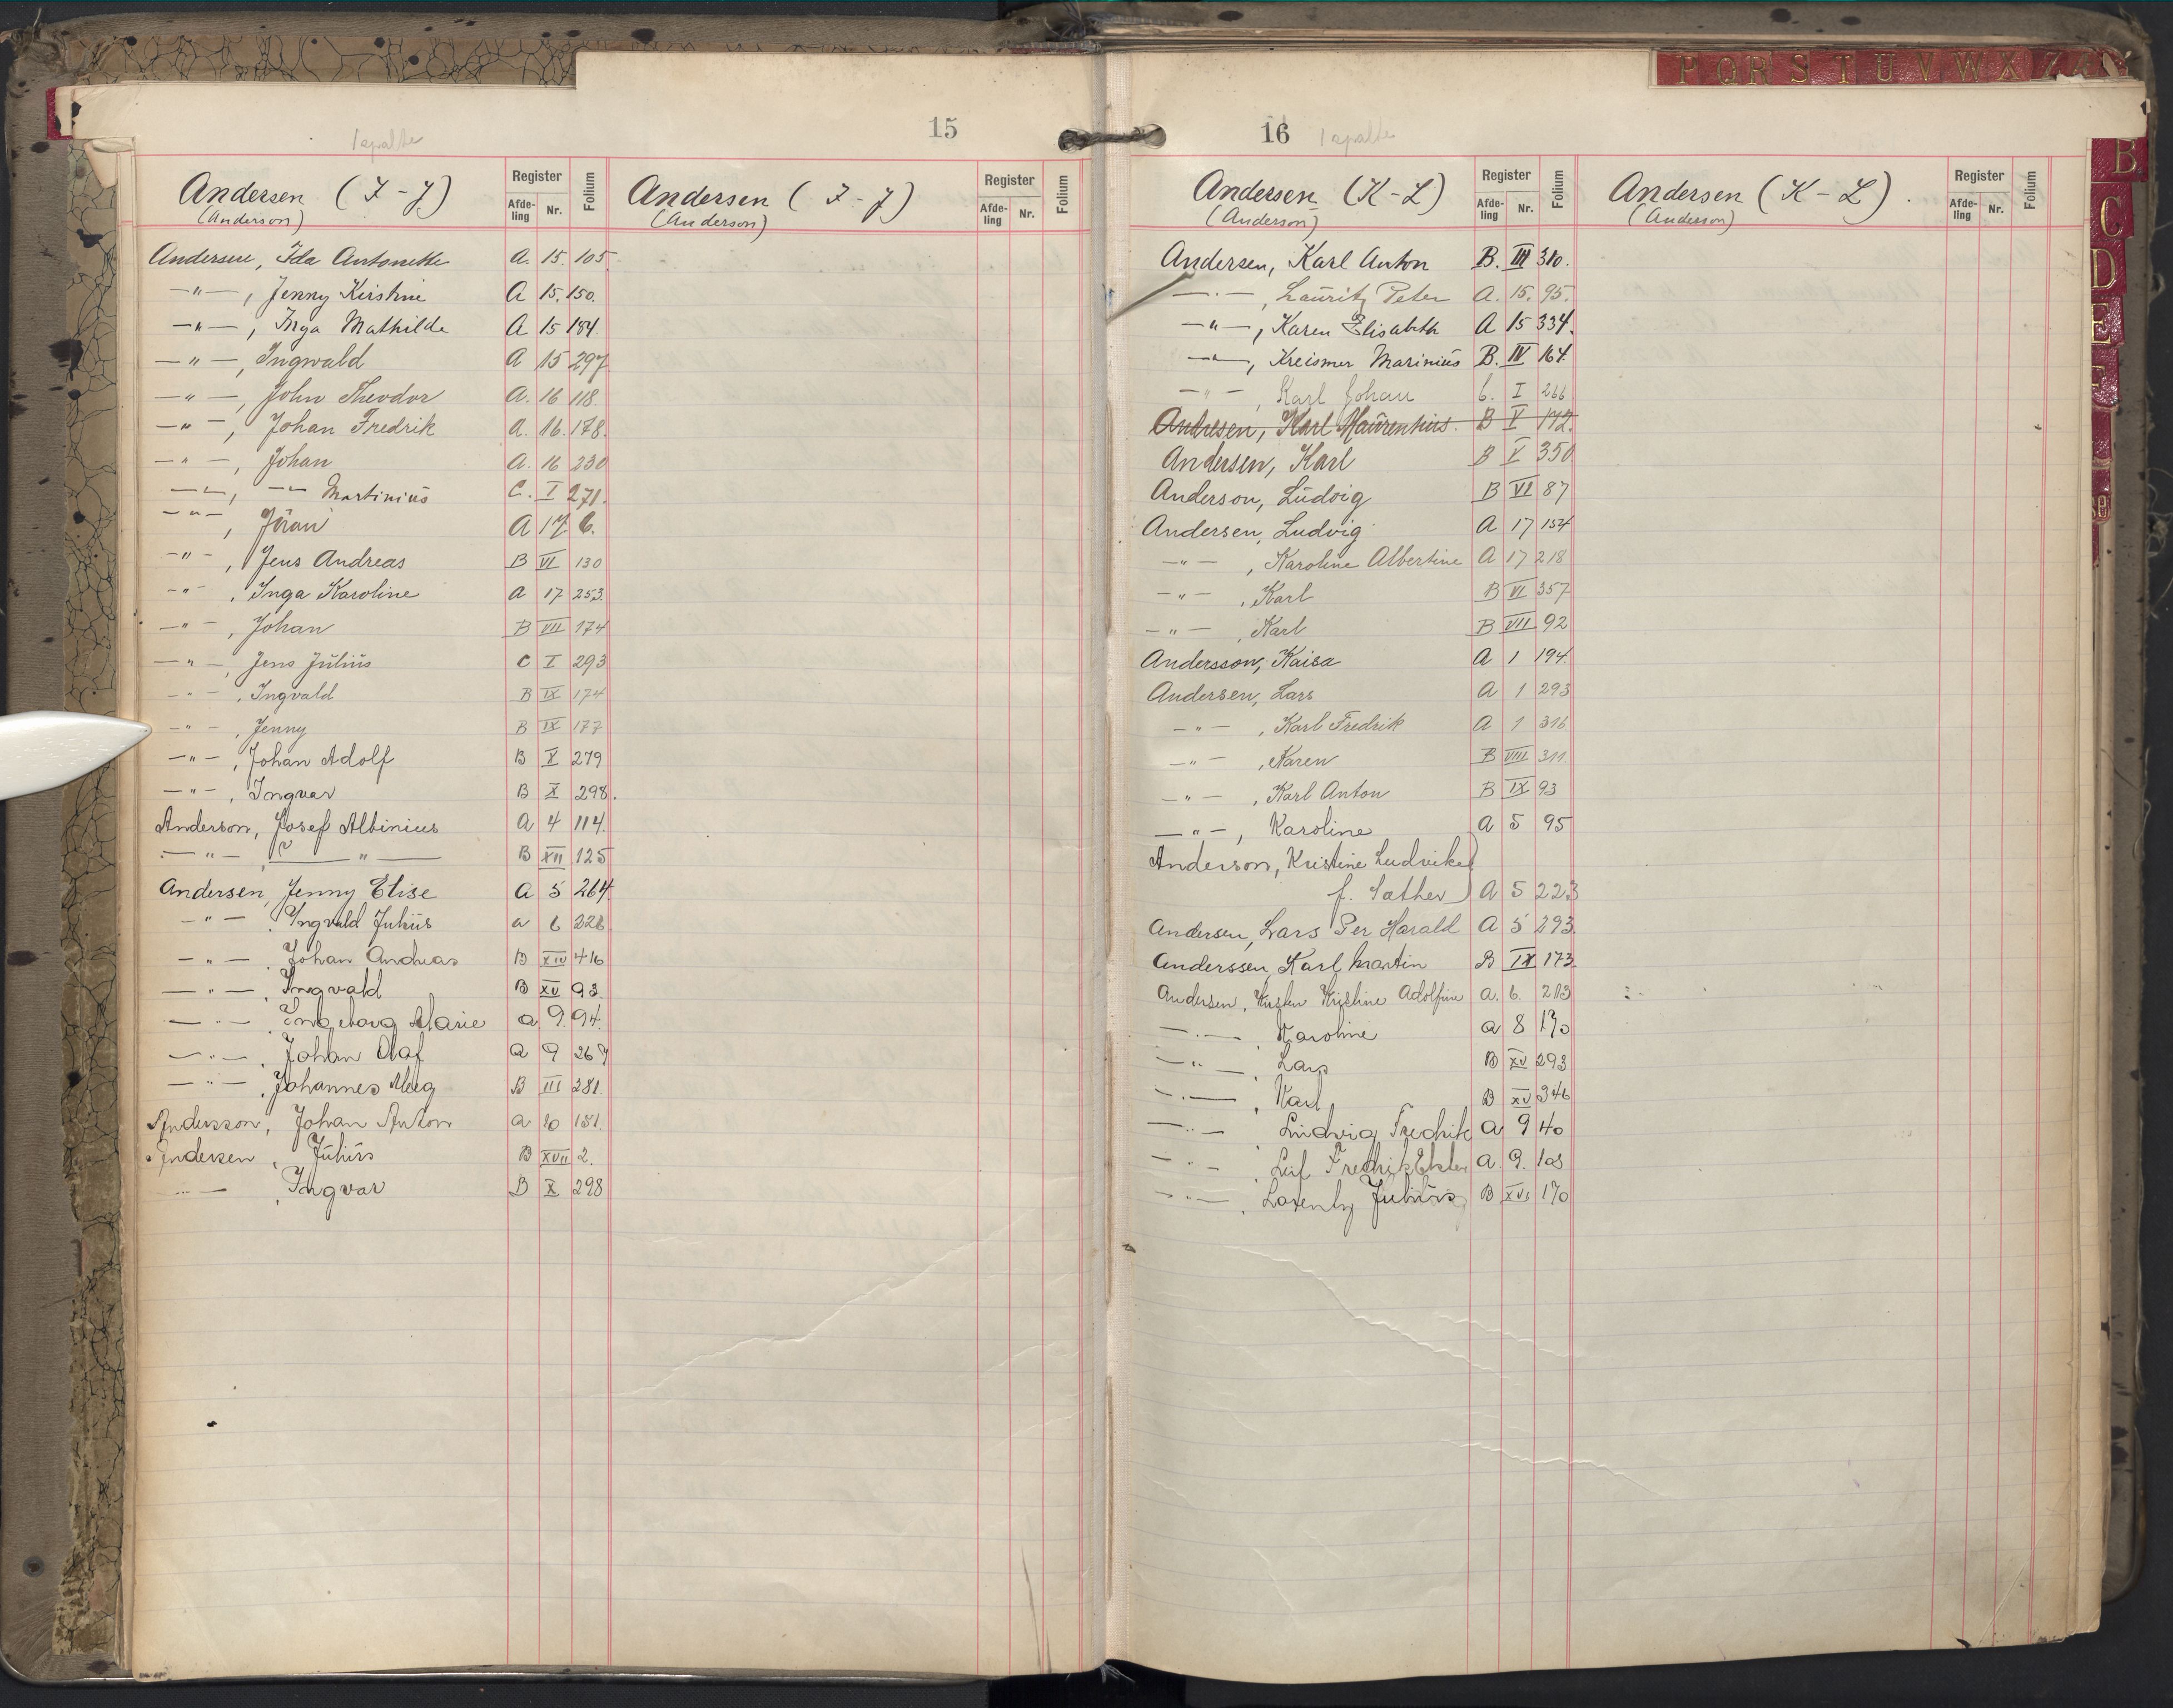 P Q R S T U V W X
15
1 spalte
Andersen (I-J)
(Anderson)
Register
Afdeling
Nr.
Folium
Andersen (I-J)
(Anderson)
Register
Afdeling
Nr.
Folium
Andersen, Ida Antonette A. 15. 105.
—"—, Jenny Kirstine A 15. 150.
—"—, Inga Mathilde A 15 184.
—"—, Ingwald A 15 297
—"—, John Theodor A. 16 118.
—"—, Johan Fredrik A. 16. 178.
—"—, Johan A. 16 230
—"—, —"— Martinius C. I 271.
—"—, A 17 6.
—"—, Jens Andreas B VI 130
—"—, Inga Karoline A 17 253.
—"—, Johan B VII 174
—"—, Jens Julius C I 293
—"—, Ingvald B IX 174
—"—, Jenny B IX 177
—"—, Johan Adolf B X 279
—"—, Ingvar B X 298.
Anderson, Josef Albinius A 4 114.
—"—, —"— B XII 125
Andersen, Jenny Elise A 5 264.
—"—, Ingvald Julius a 6 228
—"—, Johan Andreas B XIV 416
—"—, Ingvald B XV 93.
—"—, Ingeborg Marie a 9. 94.
—"—, Johan Olaf a 9 269
—"—, Johannes B III 281.
Andersson, Johan Anton a 10 151.
Andersen, Julius B XVII 2.
—"—, Ingvar B X 298
16
1 spalte
Andersen (K-L)
(Anderson)
Register
Afdeling
Nr.
Folium
Andersen (K-L)
(Anderson)
Register
Afdeling
Nr.
Folium
Andersen, Karl Anton B. III 310.
—"—, Lauritz Peter A. 15. 95.
—"—, Karen Elisabeth A 15 334.
—"—, Kreismer Marinius B. IV 164.
—"—, Karl Johan C. I 266
Andresen, Karl B V 142.
Andersen, Karl B V 350
Anderson, Ludvig B VI 87
Andersen, Ludvig A 17 154
—"—, Karoline Albertine A 17 218
—"—, Karl B VI 357
—"—, Karl B VII 92
Andersson, Kaisa A 1 194.
Andersen, Lars A 1 293
—"—, Karl Fredrik A 1 316
—"—, Karen B VIII 311
—"—, Karl Anton B IX 93
—"—, Karoline A 5 95
Anderson, Kristine Ludvike
f. Sæther) A 5 223
Andersen, Lars Per Harald A 5 293.
Anderssen, Karl Martin B IX 173.
Andersen, Kristine Adolfine a. 6. 213
—"—, Karoline a 8 170
—"—, Lars B XV 293
—"—, Karl B XV 346
—"—, Ludvig Fredrik a 9 40
—"—, Leif Fredrik a. 9. 103
—"—, Lorentz Julius B XVI 170
B
C
D
E